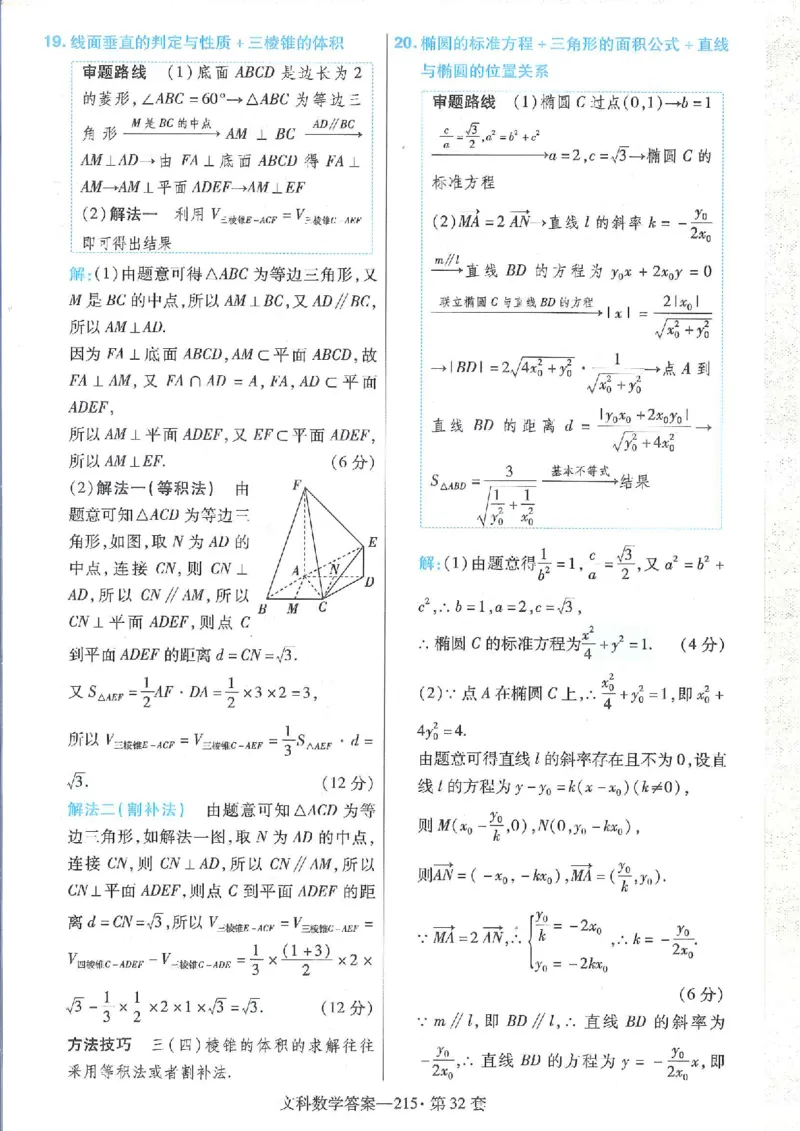 19. 线面垂直的判定与性质+三棱锥的体积
审题路线 (1)底面 ABCD 是边长为 2
的菱形,∠ABC=60°→△ABC 为等边三
角形 —M是BC的中点→ AM ⊥ BC —AD∥BC→
AM⊥AD→由 FA⊥底面 ABCD 得 FA⊥
AM→AM⊥平面 ADEF→AM⊥EF
(2)解法一 利用 V三棱锥E-ACF = V三棱锥C-AEF
即可得出结果
解:(1)由题意可得△ABC 为等边三角形,又
M 是 BC 的中点,所以 AM⊥BC,又 AD∥BC,
所以 AM⊥AD.
因为 FA⊥底面 ABCD,AM⊂平面 ABCD,故
FA⊥AM,又 FA∩AD=A,FA,AD⊂平面
ADEF,
所以 AM⊥平面 ADEF,又 EF⊂平面 ADEF,
所以 AM⊥EF. (6 分)
(2)解法一(等积法) 由
题意可知△ACD 为等边三
角形,如图,取 N 为 AD 的
中点,连接 CN,则 CN⊥
AD,所以 CN∥AM,所以
CN⊥平面 ADEF,则点 C
F
E
A
N
D
B M C
到平面 ADEF 的距离 d=CN=√3.
又 S△AEF = 1/2 AF·DA = 1/2 ×3×2=3,
所以 V三棱锥E-ACF = V三棱锥C-AEF = 1/3 S△AEF · d =
√3. (12 分)
解法二(割补法) 由题意可知△ACD 为等
边三角形,如解法一图,取 N 为 AD 的中点,
连接 CN,则 CN⊥AD,所以 CN∥AM,所以
CN⊥平面 ADEF,则点 C 到平面 ADEF 的距
离 d=CN=√3,所以 V三棱锥E-ACF = V三棱锥C-AEF =
V四棱锥C-ADEF − V三棱锥C-ADE = 1/3 × (1+3)/2 ×2×
√3 − 1/3 × 1/2 ×2×1×√3=√3. (12 分)
方法技巧 三(四)棱锥的体积的求解往往
采用等积法或者割补法.
20. 椭圆的标准方程+三角形的面积公式+直线
与椭圆的位置关系
审题路线 (1)椭圆 C 过点(0,1)→b=1
—c/a=√3/2, a²=b²+c²→a=2,c=√3→椭圆 C 的
标准方程
(2)MA→=2AN→→直线 l 的斜率 k=−y₀/2x₀
—m∥l→直线 BD 的方程为 y₀x+2x₀y=0
—联立椭圆C与直线BD的方程→|x|=2|x₀|/√(x₀²+y₀²)
→|BD|=2√(4x₀²+y₀²)·1/√(x₀²+y₀²)→点 A 到
直线 BD 的距离 d=|y₀x₀+2x₀y₀|/√(y₀²+4x₀²)→
S△ABD=3/√(1/y₀²+1/x₀²) —基本不等式→结果
解:(1)由题意得 1/b²=1, c/a=√3/2,又 a²=b²+
c²,∴b=1,a=2,c=√3,
∴椭圆 C 的标准方程为 x²/4+y²=1. (4 分)
(2)∵点 A 在椭圆 C 上,∴x₀²/4+y₀²=1,即 x₀²+
4y₀²=4.
由题意可得直线 l 的斜率存在且不为 0,设直
线 l 的方程为 y−y₀=k(x−x₀)(k≠0),
则 M(x₀−y₀/k,0),N(0,y₀−kx₀),
则AN→=(−x₀,−kx₀),MA→=(y₀/k,y₀).
∵MA→=2AN→,∴{y₀/k=−2x₀ y₀=−2kx₀,∴k=−y₀/2x₀.
(6 分)
∵m∥l,即 BD∥l,∴直线 BD 的斜率为
−y₀/2x₀,∴直线 BD 的方程为 y=−y₀/2x₀ x,即
文科数学答案—215·第 32 套